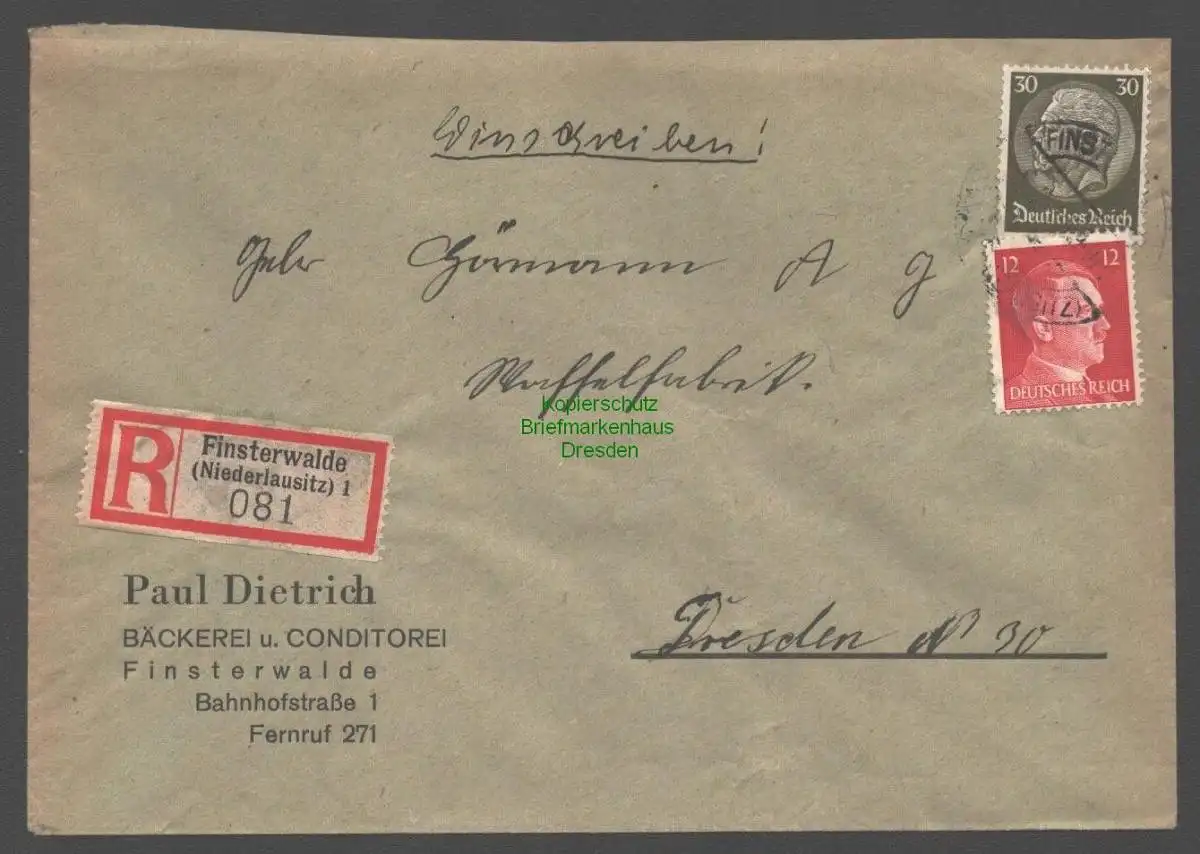 Einschreiben!
30 30
FINS
Deutsches Reich
12 12
DEUTSCHES REICH
Gebr Hörmann A G
Waffelfabrik.
Kopierschutz
Briefmarkenhaus
Dresden
R
Finsterwalde
(Niederlausitz) 1
081
Paul Dietrich
BÄCKEREI u. CONDITOREI
Finsterwalde
Bahnhofstraße 1
Fernruf 271
Dresden N 30